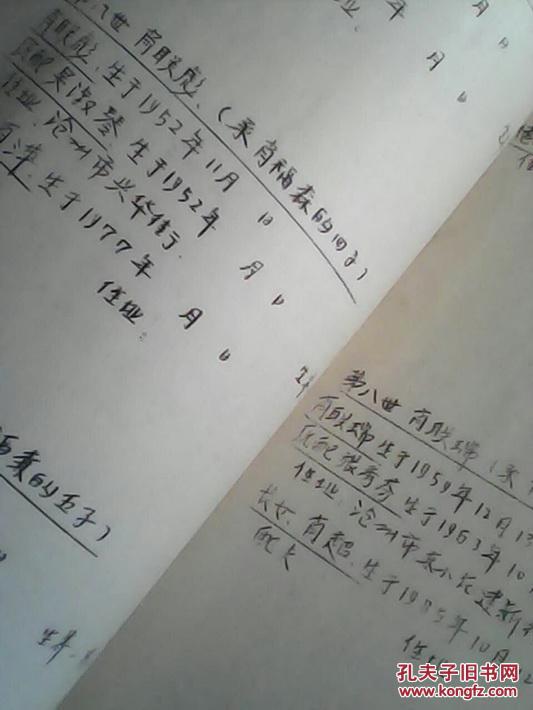 年 月 日
住址:
月 日
第八世 肖联彪、(系肖福森的四子)
肖联彪. 生于1952年11月 日
原配吴淑琴 生于1952年 月 日
住址: 沧州市兴华街
肖 生于1977年 月 日
住址:
的五子)
第八世 肖联瑞(系
肖联瑞 生于1959年12月1
原配张秀芬 生于1963年10
住址: 沧州市 建新
长女. 肖超. 生于1985年10月
配夫
住址
生养
孔夫子旧书网
www.kongfz.com